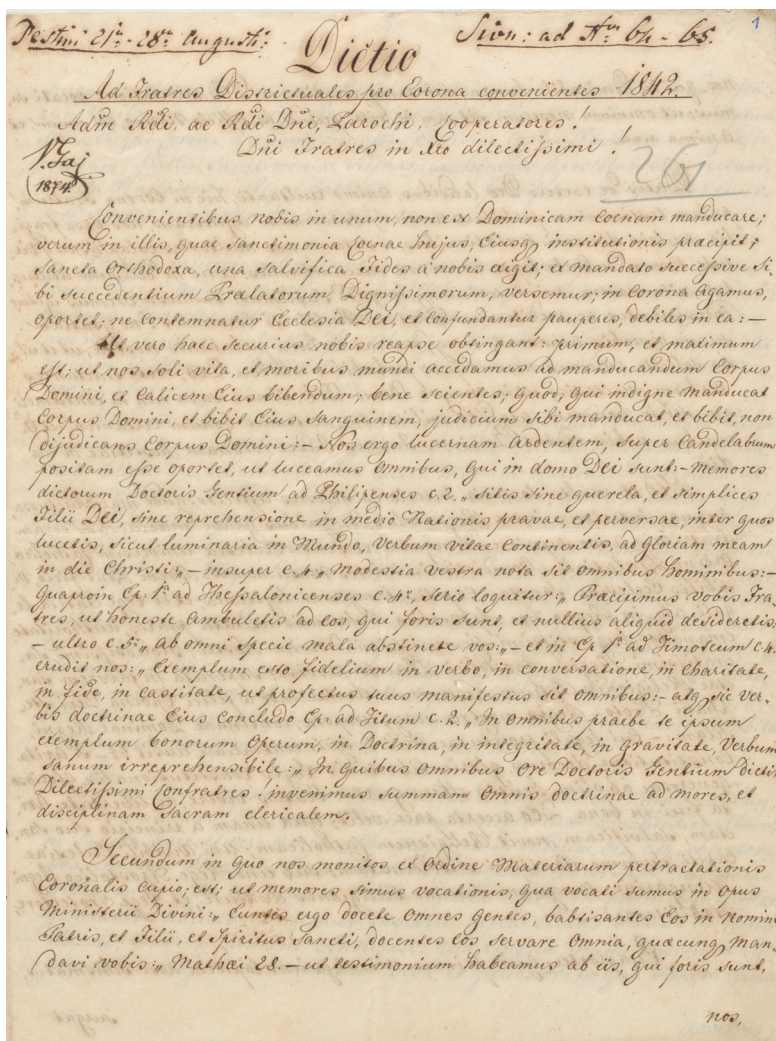 Pestini 21a - 28a Augusti:
Sion: ad Nrm 64 - 65.
1
Dictio
Ad Fratres Districtuales pro Corona convenientes 1842.
Adm Rdi, ac Rdi Dni, Parochi, Cooperatores!
Dni Fratres in Xto dilectissimi!
1874
261
Convenientibus nobis in unum, non est Dominicam Coenam manducare;
verum in illis, quae sanctimonia Coenae hujus, Ejusq institutionis praecipit;
sancta Orthodoxa, una salvifica Fides a nobis exigit; ex mandato successive si-
bi succedentium Praelatorum Dignissimorum, versemur; in Corona agamus,
oportet; ne contemnatur Ecclesia Dei, et confundantur pauperes, debiles in ea: -
Ut vero haec securius nobis reapse obtingant: primum, et maximum
est; ut nos soli vita, et moribus mundi accedamus ad manducandum Corpus
Domini, et Calicem Ejus bibendum; bene scientes; quod, qui indigne manducat
Corpus Domini, et bibit Ejus sanguinem, judicium sibi manducat, et bibit, non
dijudicans Corpus Domini: - Nos ergo lucernam ardentem, super Candelabrum
positam esse oportet, ut luceamus omnibus, qui in domo Dei sunt: - Memores
dictorum Doctoris Gentium ad Philipenses c. 2. „ sitis sine querela, et simplices
Filii Dei, sine reprehensione in medio Nationis pravae, et perversae, inter quos
lucetis, sicut luminaria in Mundo, Verbum vitae Continentis, ad Gloriam meam
in die Christi: „ - insuper c. 4 „ Modestia vestra nota sit omnibus hominibus: -
Quaproin Ep. 1a ad Thessalonicenses c. 4o, serio loquitur: „ Praecipimus vobis Fra-
tres, ut honeste ambuletis ad eos, qui foris sunt, et nullius aliquid desideretis:
- ultro c. 5o „ ab omni specie mala abstinete vos: „ - et in Ep 1a ad Timoteum c. 4.
erudit nos: „ Exemplum esto fidelium in verbo, in conversatione, in Charitate,
in fide, in castitate, ut profectus tuus manifestus sit omnibus: - atq sic ver-
bis doctrinae Ejus concludo Ep: ad Titum c. 2. „ In omnibus praebe te ipsum
exemplum bonorum Operum, in Doctrina, in integritate, in gravitate, Verbum
sanum irreprehensibile: „ In quibus omnibus ore Doctoris Gentium dictis
Dilectissimi Confratres! invenimus summam omnis doctrinae ad mores, et
disciplinam sacram clericalem.
Secundum in quo nos monitos ex Ordine Materiarum pertractationis
Coronalis cupio; est; ut memores simus vocationis, qua vocati sumus in opus
Ministerii Divini: „ Euntes ergo docete omnes gentes, babtisantes Eos in Nomine
Patris, et Filii, et Spiritus Sancti, docentes Eos servare omnia, quaecunq Man-
davi vobis: „ Mathaei 28. - ut testimonium habeamus ab iis, qui foris sunt,
nos,